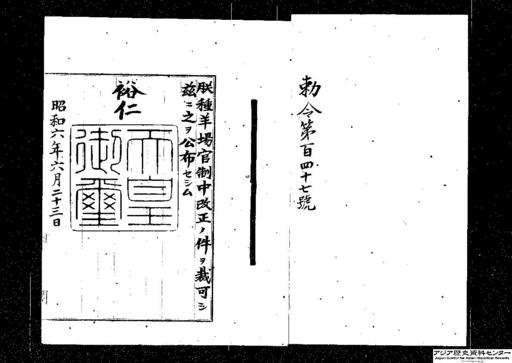 勅令第百四十七號
朕種羊場官制中改正ノ件ヲ裁可シ
茲ニ之ヲ公布セシム
裕仁
天皇御璽
昭和六年六月二十三日
アジア歴史資料センター
Japan Center for Asian Historical Records